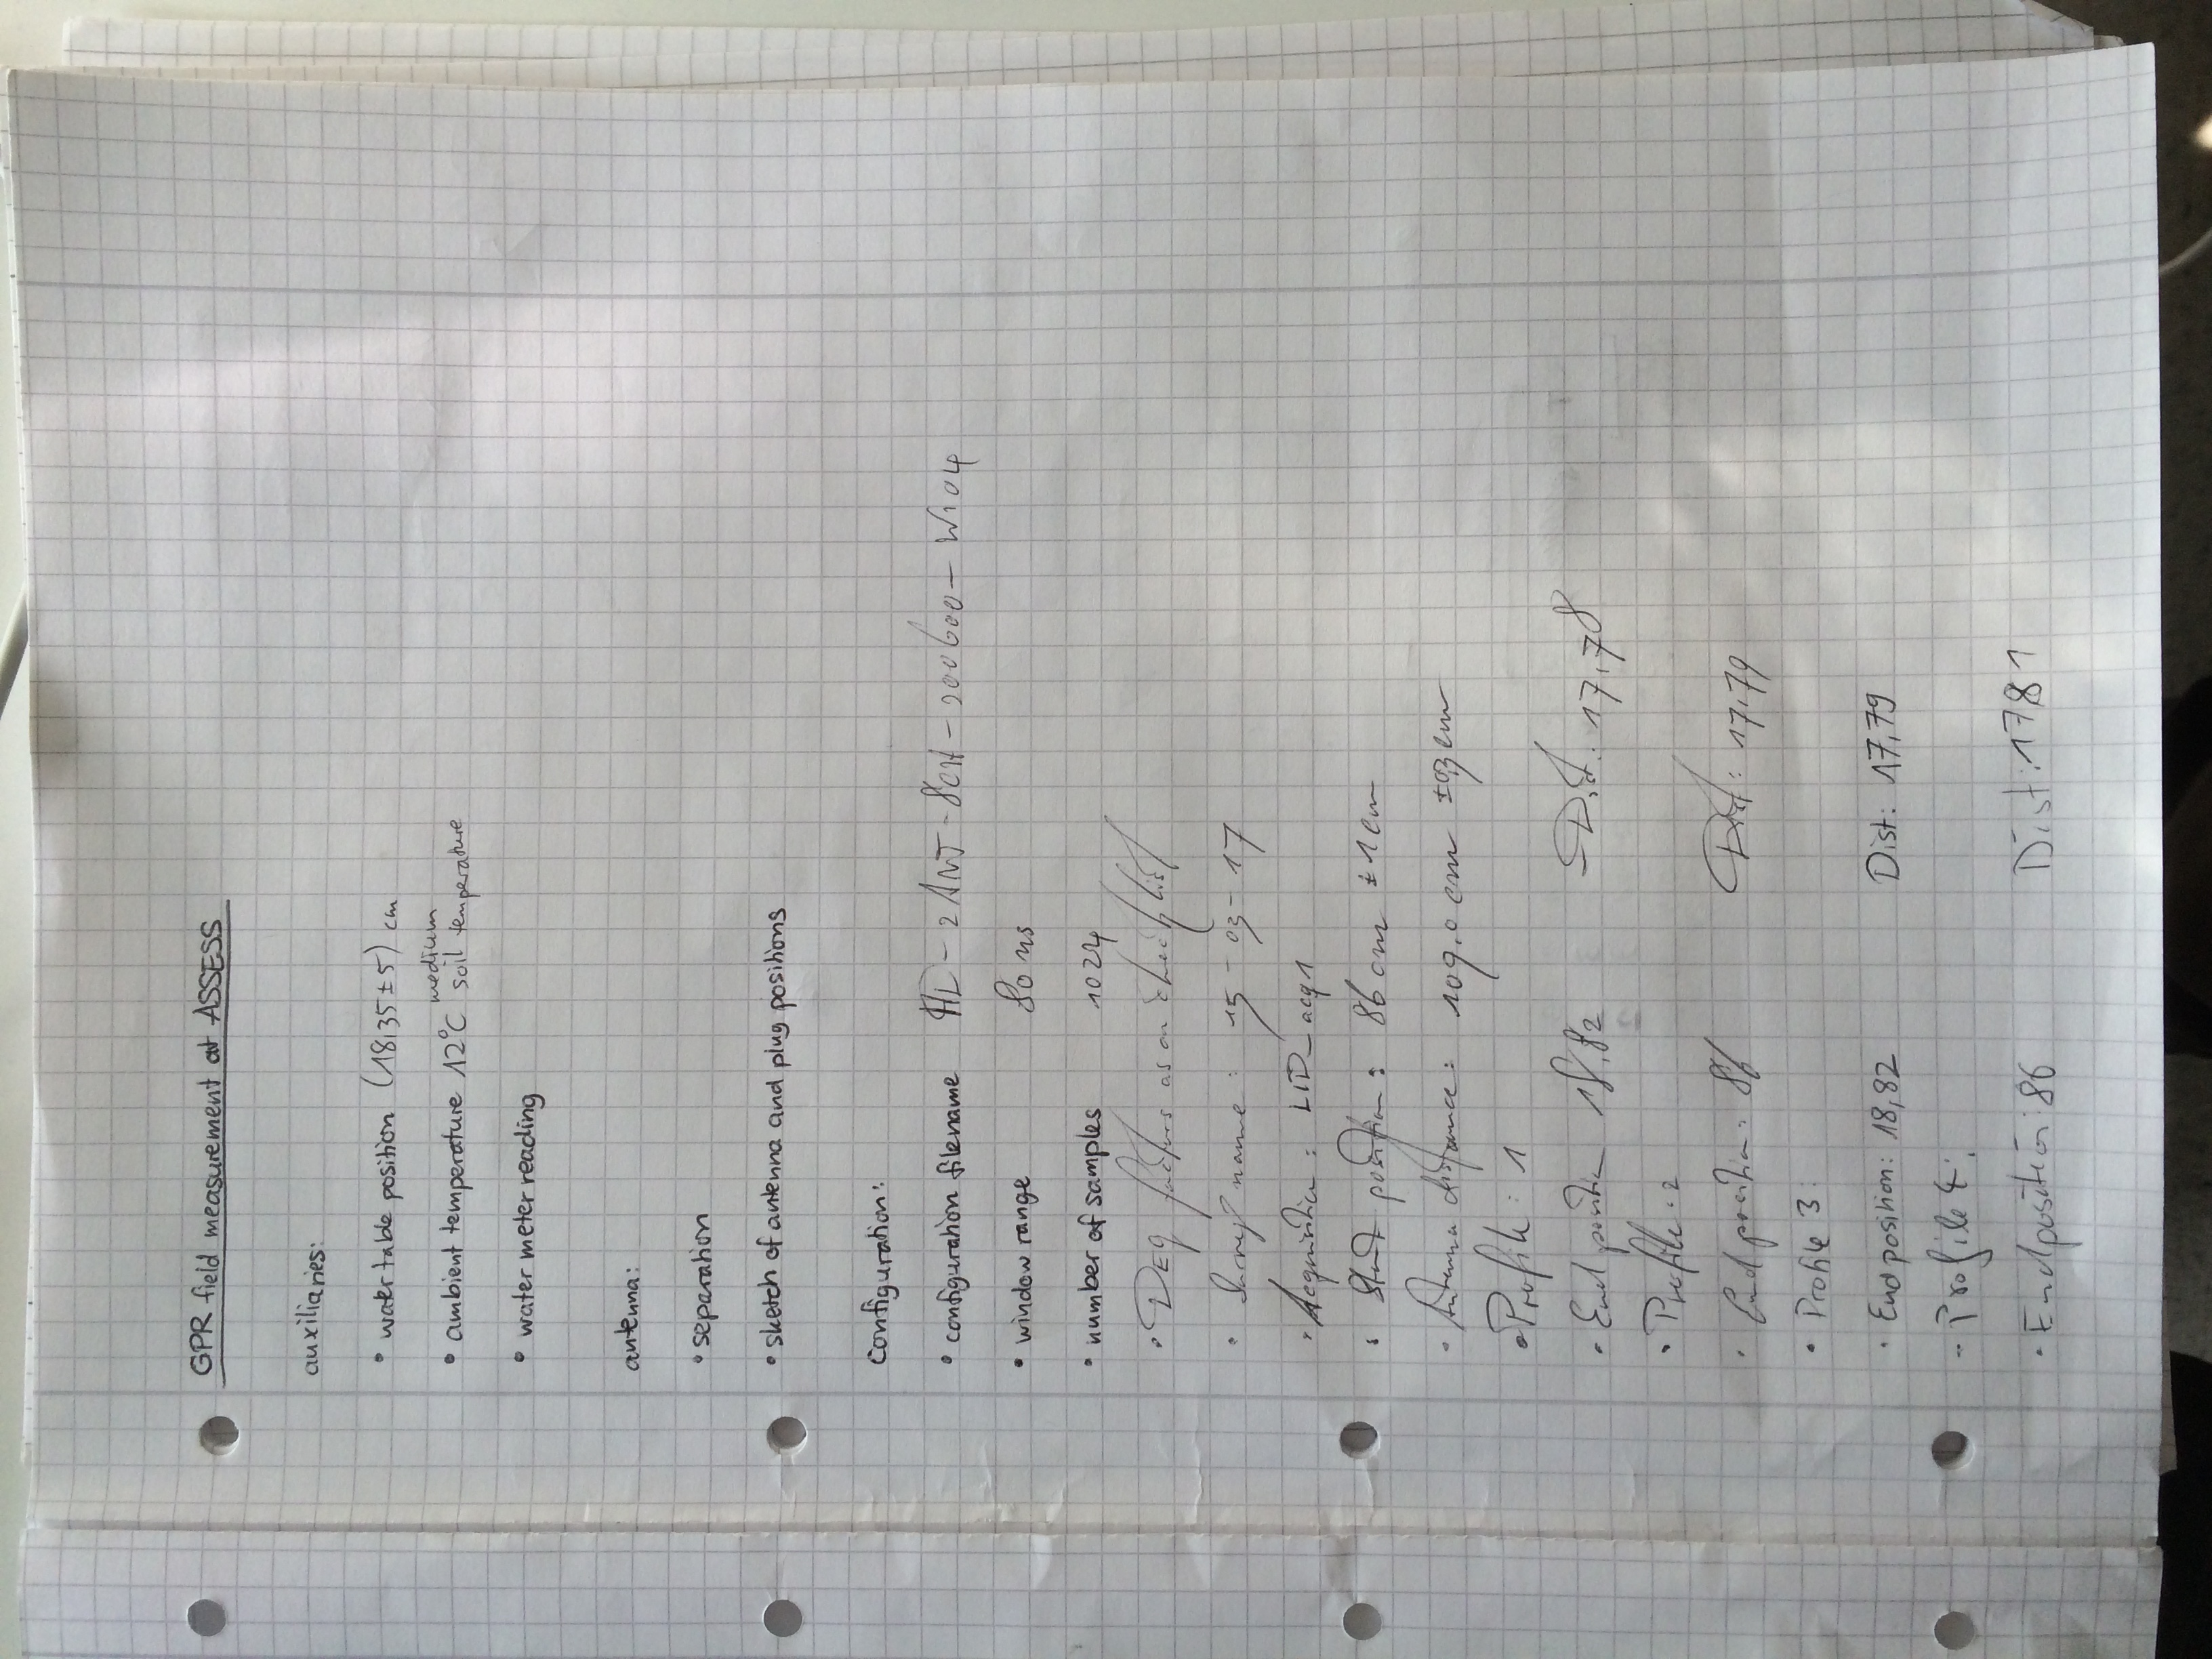 GPR field measurement at ASSESS
auxiliaries:
• water table position (18135±5) cm
• ambient temperature 12°C medium soil temperature
• water meter reading
antenna:
• separation
• sketch of antenna and plug positions
Configuration:
• configuration filename HD-2ANT-8CH-200600-W104
• window range 80 ns
• number of samples 1024
• DEQ as on
• Survey name: 15-03-17
• Acquisition: LID_acq1
• Start position: 86 cm ±1cm
• Antenna distance: 109,0 cm ±0,3cm
• Profile: 1
• End position 18,82 Dist. 17,78
• Profile: 2
• End position: 86 Dist: 17,79
• Profile 3:
• Endposition: 18,82 Dist: 17,79
- Profile 4:
• Endposition: 86 Dist: 17,81